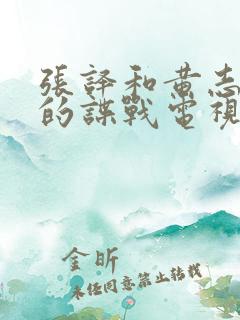 張譯和黃志
的諜戰電視
金昕
未經同意禁止轉載